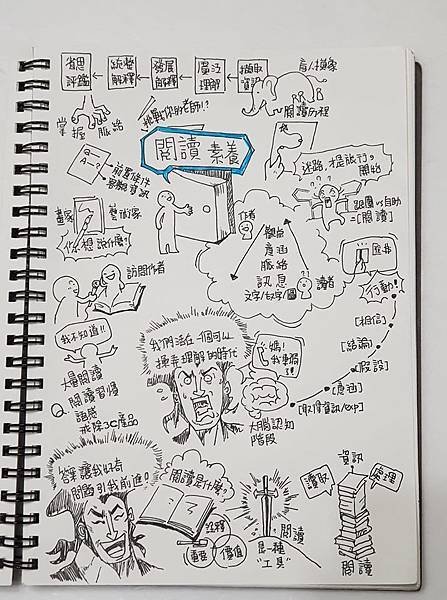 省思
評鑑
統整
解釋
發展
解釋
廣泛
理解
擷取
資訊
盲人摸象
閱讀歷程
掌握
脈絡
挑戰你的老師!?
閱讀 素養
Q
A-?
前置條件
客觀資訊
迷路,才是旅行的
開始
跟團 VS 自助
=[閱讀]
畫家
藝術家
你想說什麼?
作者
觀點
意涵
脈絡
訊息
文字/数字/圖
讀者
訪問作者
行動!
[相信]
[結論]
[假設]
[意涵]
[取得資訊/exp]
我不知道!!
大量閱讀
閱讀習慣
語感
戒除3C產品
我們活在一個可以
揀弃理解的時代
媽!
大腦認知
階段
答案讓我好奇
問題引我前進。
閱讀是什麼?
詮釋
需要
價值
閱讀
是一種
"工具"
資訊
讀取
處理
閱讀